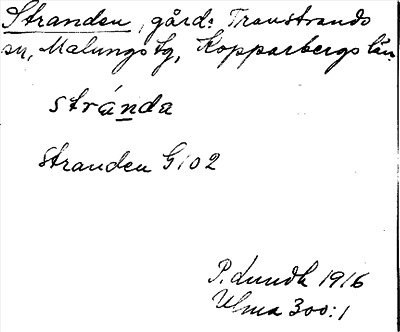 Stranden, gård: Transtrands
sn, Malungs tg, Kopparbergs län.
strá̱nda
Stranden G102
P. Lundh 1916
Ulma 300:1